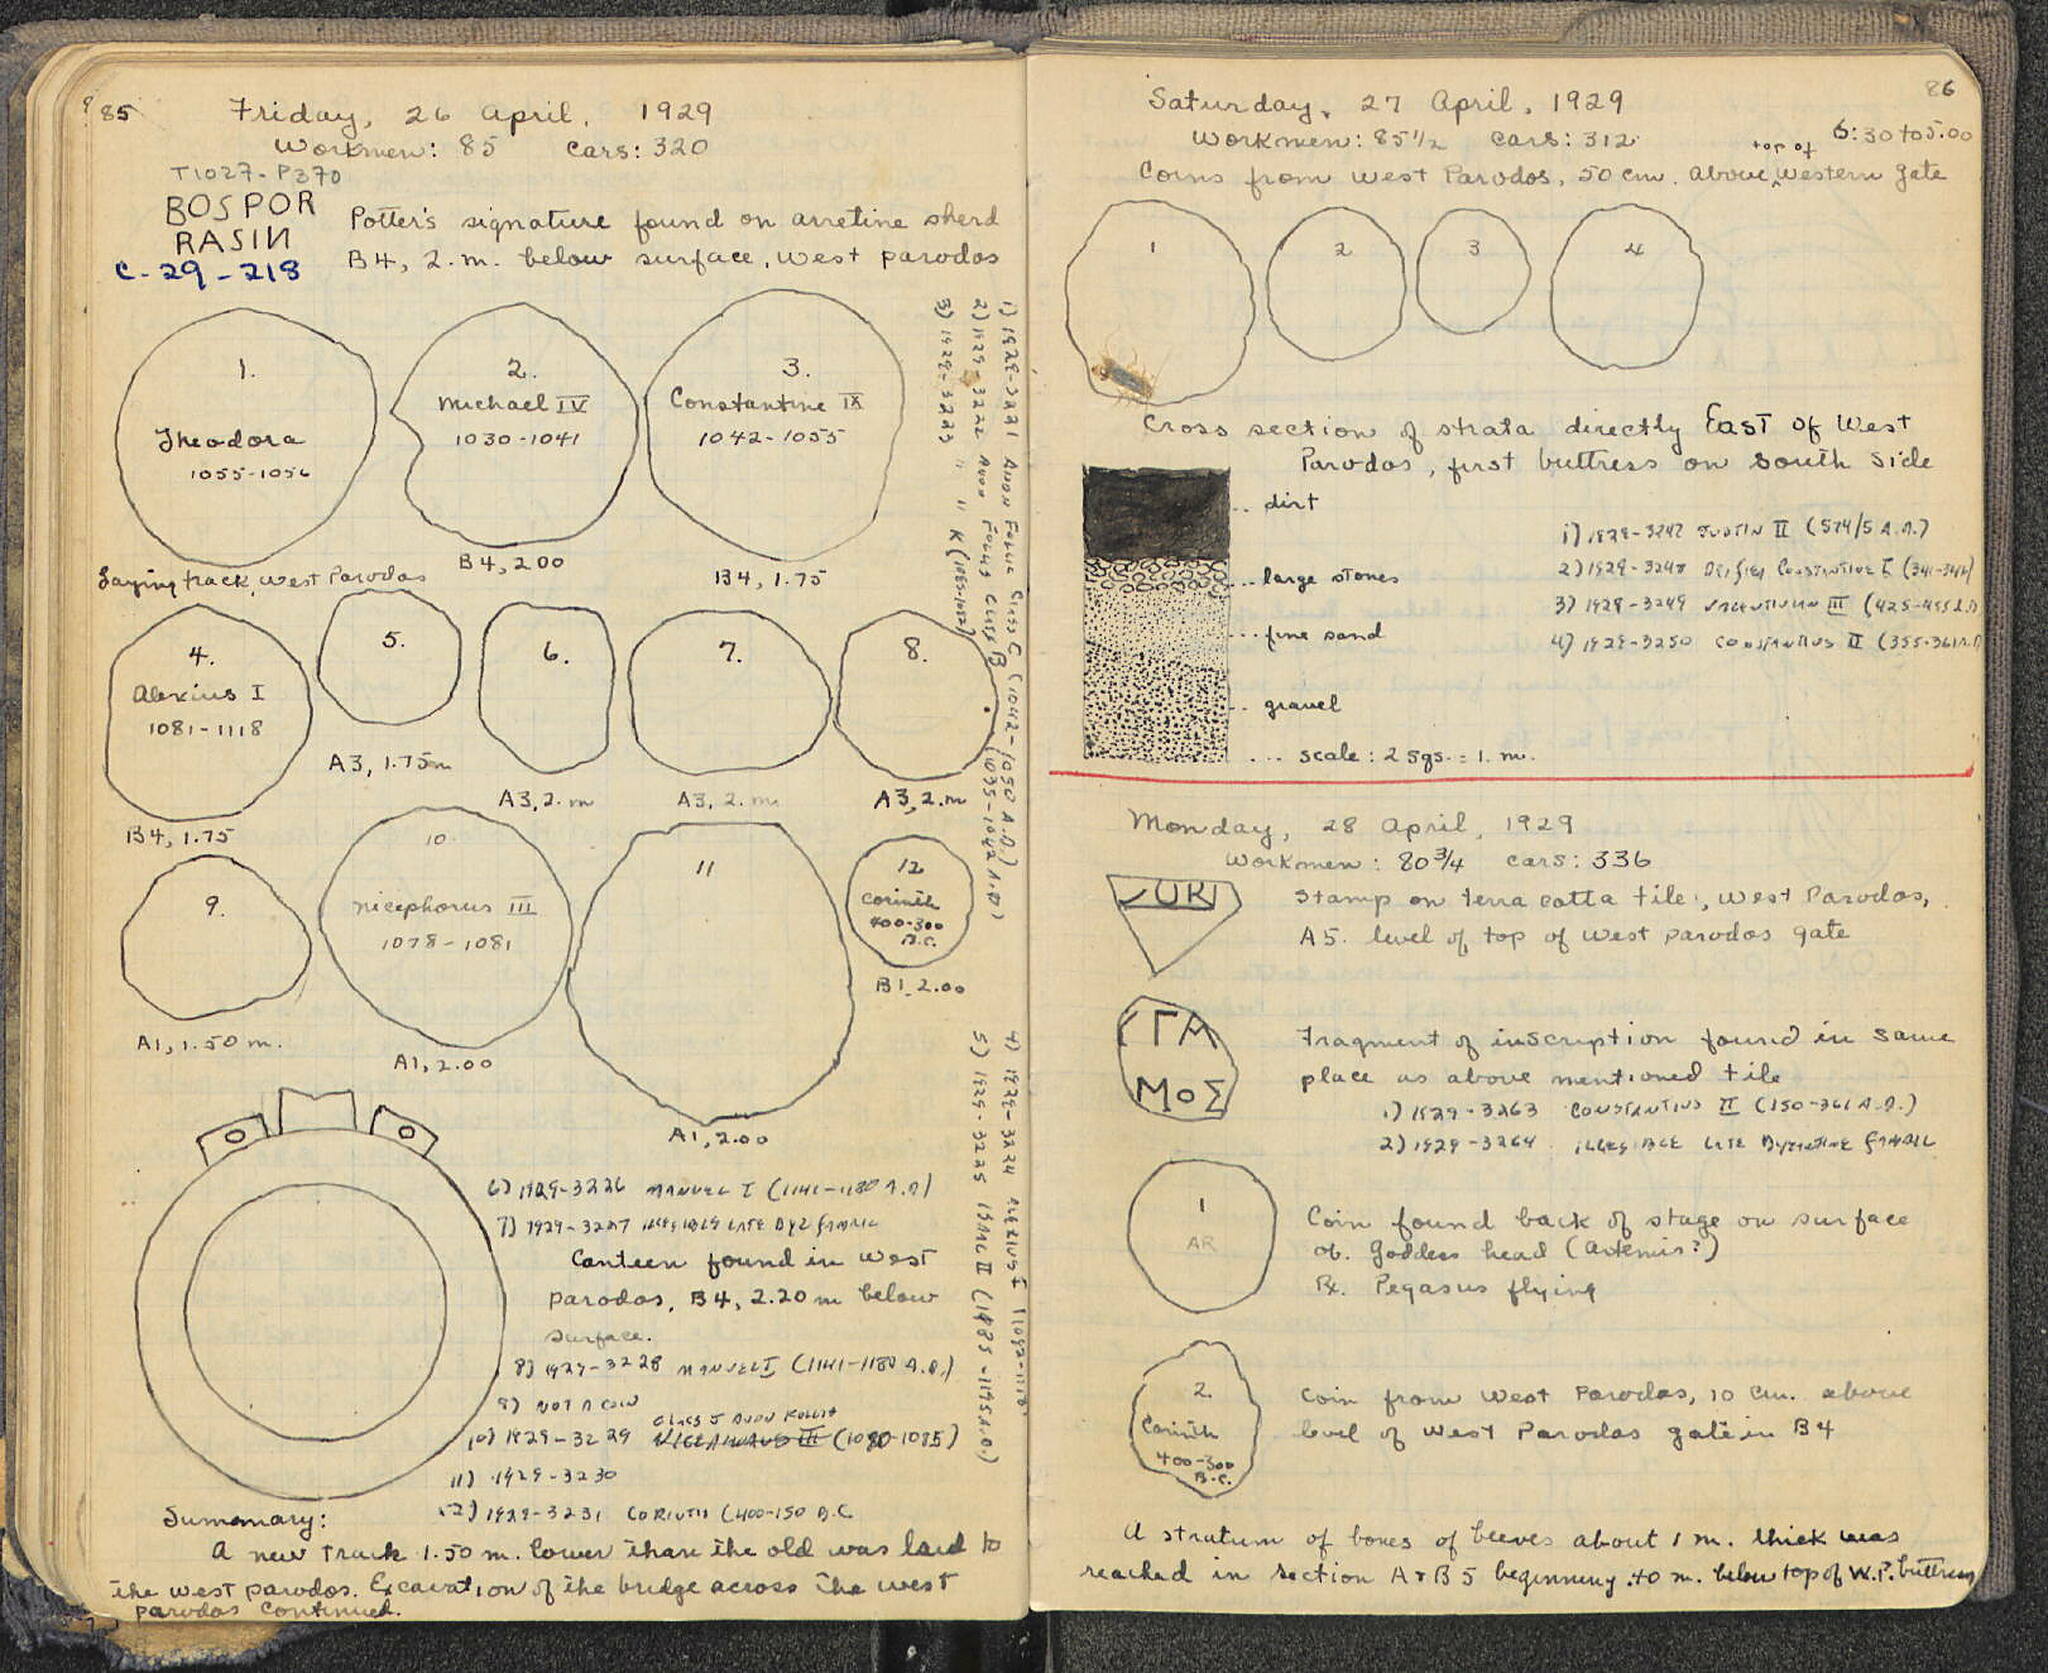 85
Friday, 26 April, 1929
Workmen: 85 Cars: 320
T1027-P370
BOSPOR
RASIN
C-29-218
Potter's signature found on arretine sherd
B4, 2. m. below surface, west parodos
1.
Theodora
1055-1056
Laying track, West Parodos
2.
Michael IV
1030-1041
B4, 200
3.
Constantine IX
1042-1055
B4, 1.75
4.
Alexius I
1081-1118
B4, 1.75
5.
A3, 1.75m
6.
A3, 2. m
7.
A3, 2. m.
8.
A3, 2. m
9.
A1, 1.50 m.
10.
Nicephorus III
1078-1081
A1, 2.00
11
A1, 2.00
12
Corinth
400-300
B.C.
B1, 2.00
1) 1929-3221 Anon Follis Class C (1042-1050 A.D.)
2) 1929-3222 Anon Follis Class B (1035-1042 A.D)
3) 1929-3223 " " K
4) 1929-3224 Alexius I
5) 1929-3225 Isaac II (1185-1195 A.D.)
6) 1929-3226 Manuel I (1141-1180 A.D)
7) 1929-3227 Illegible Late Byz
Canteen found in west
parodos, B4, 2.20 m below
surface.
8) 1929-3228 Manuel I (1141-1180 A.D.)
9) Not a coin
Class J Anon Follis
10) 1929-3229 Nicephorus III (1080-1085)
11) 1929-3230
12) 1929-3231 Corinth (400-150 B.C.
Summary:
A new track 1.50 m. lower than the old was laid to
the west parodos. Excavation of the bridge across the west
parodos continued.
86
Saturday, 27 April, 1929
Workmen: 85 1/2 Cars: 312
6:30 to 5.00
top of
Coins from West Parodos, 50 cm. above Western gate
1
2
3
4
Cross section of strata directly East of West
Parodos, first buttress on south side
.. dirt
... large stones
... fine sand
.. gravel
... scale: 2 sqs. = 1. m.
1) 1929-3247 Justin II (574/5 A.D.)
2) 1929-3248 Constantine I (341-346)
3) 1929-3249 Valentinian III (425-455 A.D
4) 1929-3250 Constantius II (355-361 A.D
Monday, 28 April, 1929
Workmen: 80 3/4 Cars: 336
Stamp on terra cotta tile, West Parodos,
A5. level of top of west parodos gate
ΓΑ
ΜΟΣ
Fragment of inscription found in same
place as above mentioned tile
1) 1929-3263 Constantius II (150-361 A.D.)
2) 1929-3264 Illegible Late Byzantine
1
AR
Coin found back of stage on surface
Ob. Goddess head (Artemis?)
Rx. Pegasus flying
2.
Corinth
400-300
B.C.
Coin from West Parodos, 10 cm. above
level of West Parodos gate in B4
A stratum of bones of beeves about 1 m. thick was
reached in section A + B5 beginning .40 m. below top of W.P. buttress